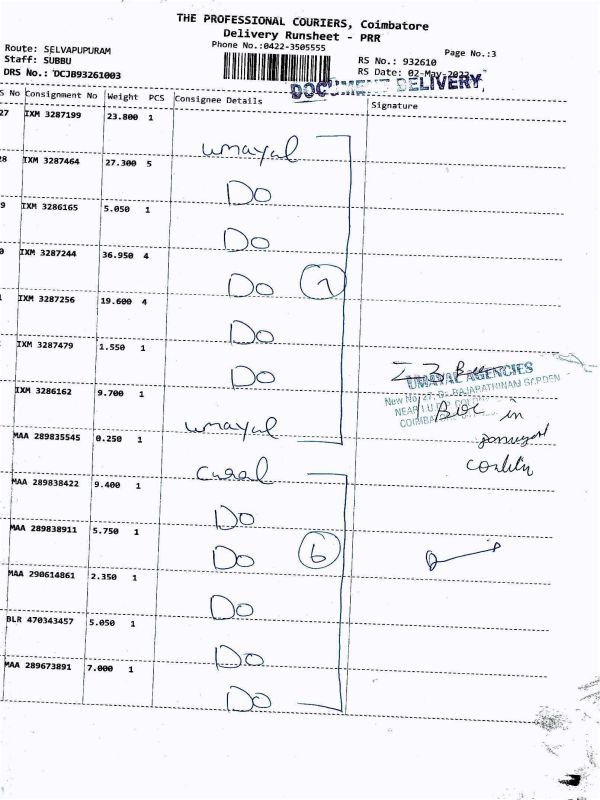 THE PROFESSIONAL COURIERS, Coimbatore
Delivery Runsheet - PRR
Phone No.:0422-3505555
Page No.:3
Route: SELVAPUPURAM
Staff: SUBBU
DRS No.: DCJB93261003
RS No.: 932610
RS Date: 02-May-2023
DOCUMENT DELIVERY
S No Consignment No Weight PCS Consignee Details Signature
27 IXM 3287199 23.800 1
umayal
28 IXM 3287464 27.300 5
Do
9 IXM 3286165 5.050 1
Do
0 IXM 3287244 36.950 4
Do 7
IXM 3287256 19.600 4
Do
IXM 3287479 1.550 1
Do
UMAYAL AGENCIES
New No. 27, RAJARATHINAM GARDEN
NEAR
IXM 3286162 9.700 1
umayal
Box in
MAA 289835545 0.250 1
MAA 289838422 9.400 1
Do
MAA 289838911 5.750 1
Do 6
MAA 290614861 2.350 1
Do
BLR 470343457 5.050 1
Do
MAA 289673891 7.000 1
Do